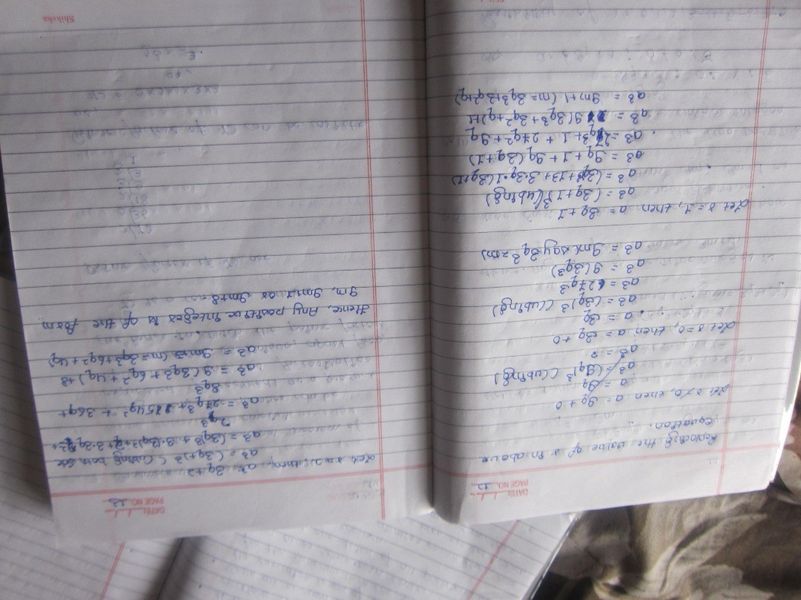 DATE:
PAGE NO. 22
Replacing the value of r in above
equation.
Let r > 0, then a = 9q + 0
a = 9q
a3 = (9q)3 (cubing)
a3 = 7
Let r = 0, then a = 3q + 0
a = 3q
a3 = (3q)3 (cubing)
a3 = 27q3
a3 = 9(3q3)
a3 = 9m (say 3q3 = m)
Let r = 1, then a = 3q + 1
a3 = (3q + 1)3 (cubing)
a3 = (3q)3 + 13 + 3·3q·1(3q+1)
a3 = 9q + 1 + 9q (3q + 1)
a3 = 27q3 + 1 + 27q2 + 9q
a3 = 9(3q3 + 3q2 + q) + 1
a3 = 9m + 1 (m = 3q3 + 3q2 + q)
DATE:
PAGE NO. 23
Let r = 2, then, a = 3q + 2
a3 = (3q + 2)3 (cubing both side
a3 = 27q3 + 54q2 + 36q +
8q3
a3 = 9(3q3 + 6q2 + 4q) + 8
a3 = 9m + 8 (m = 3q3 + 6q2 + 4q)
Hence, Any positive integer is of the form
9m, 9m+1 or 9m+8
Shikska